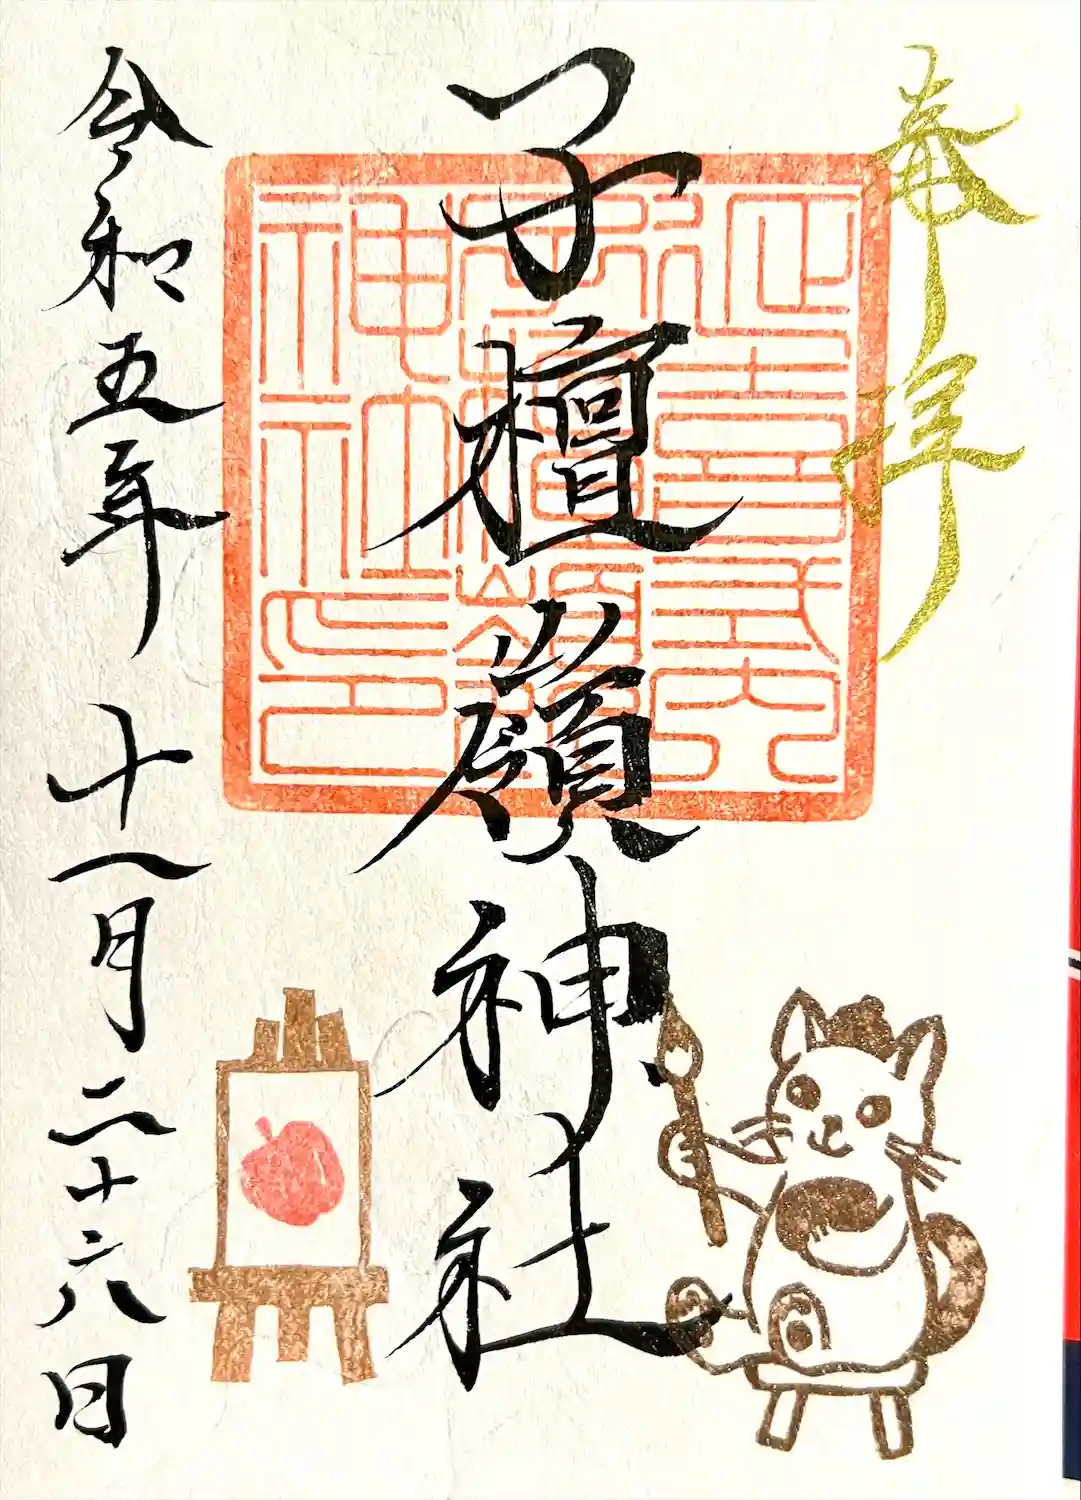 奉拝
延喜式内
子檀嶺
神社印
子檀嶺神社
令和五年十一月二十六日